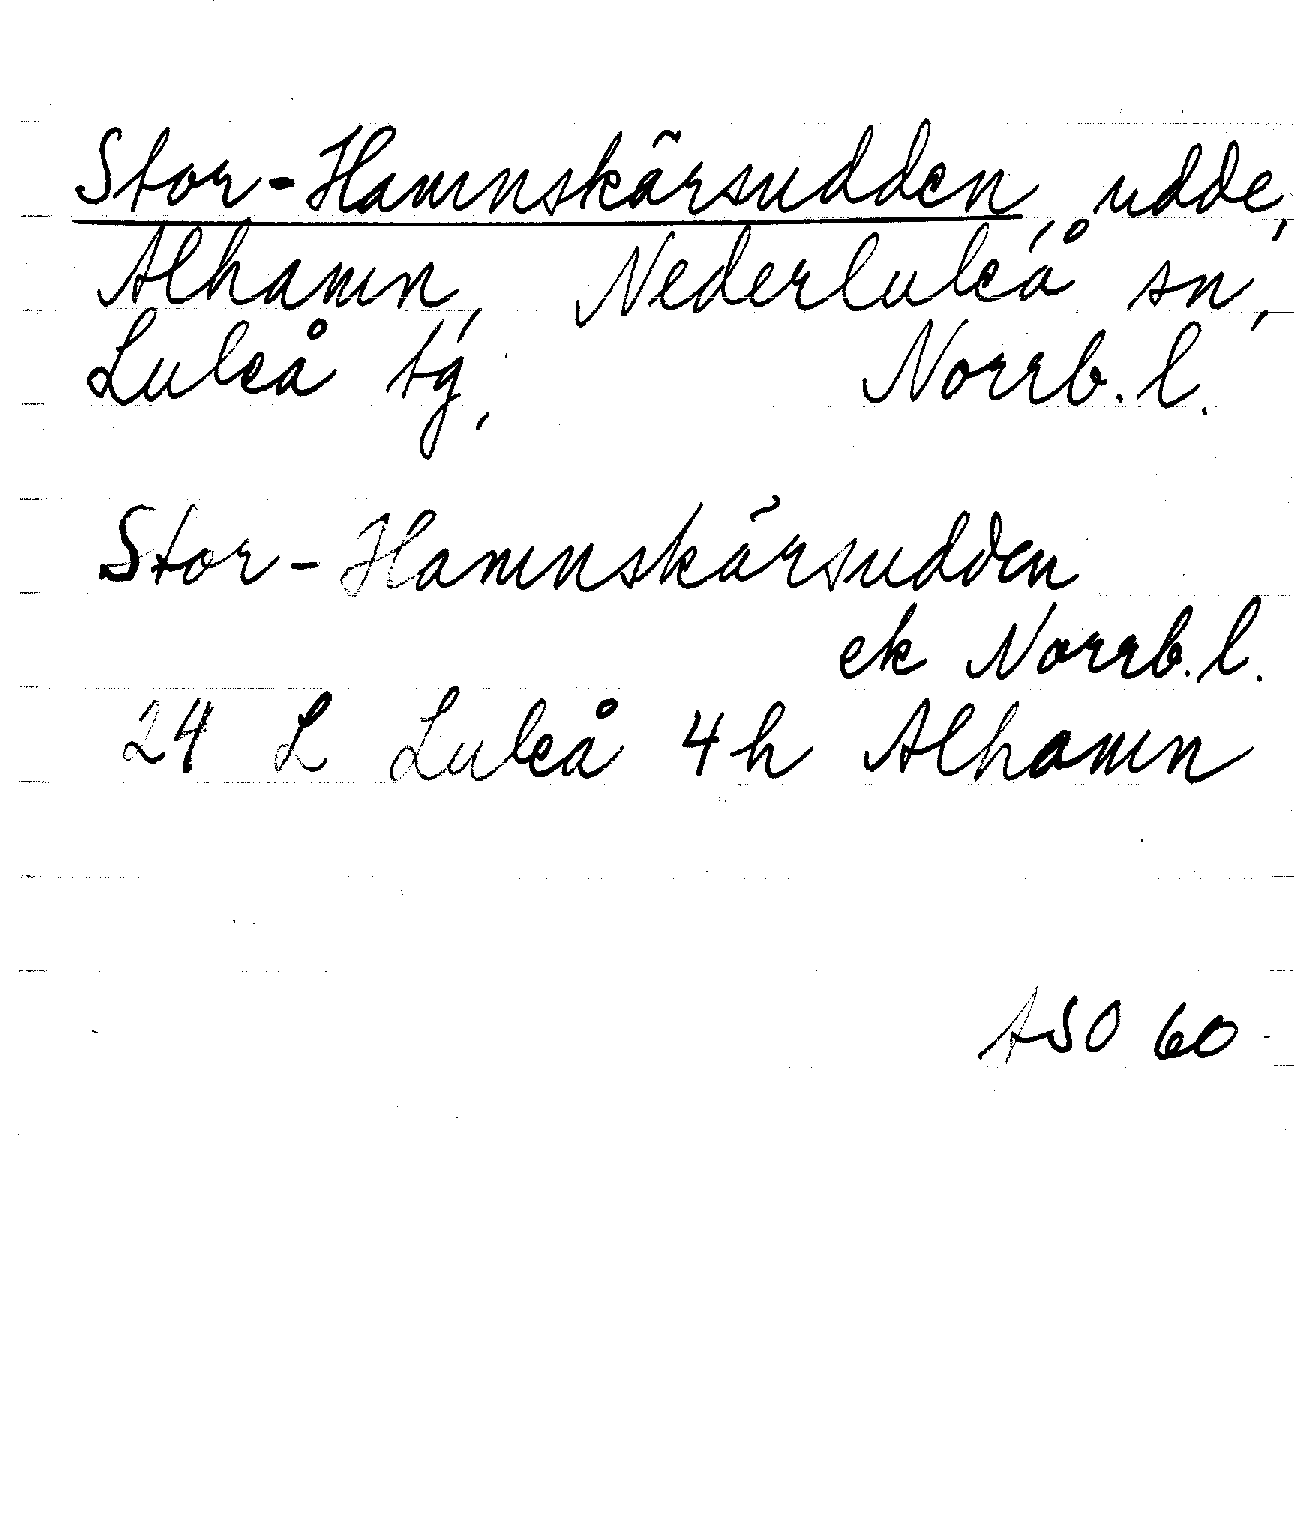 Stor-Hamnskärsudden, udde,
Alhamn, Nederluleå sn,
Luleå tg, Norrb. l.
Stor-Hamnskärsudden
ek Norrb. l.
24 L Luleå 4h Alhamn
ASO 60